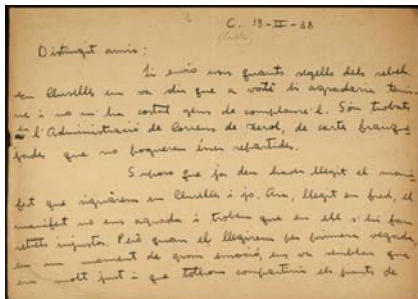 C. 18-II-38
Distingit amic:
Li envio uns quants segells dels rebels.
En Cluselles em va dir que a vostè li agradaria tenir-
ne i no m'ha costat gens de complaure'l. Són trobats
en l'Administració de Correus de Terol, de cartes franque-
jades que no pogueren ésser repartides.
Suposo que ja deu haver llegit el mani-
fest que signàrem en Cluselles i jo. Ara, llegit en fred, el
manifest no ens agrada i trobem que en ell s'hi fan
retrets injustos. Però quan el llegírem per primera vegada,
en un moment de gran emoció, ens va semblar que
era molt just i que tothom compartiria els punts de